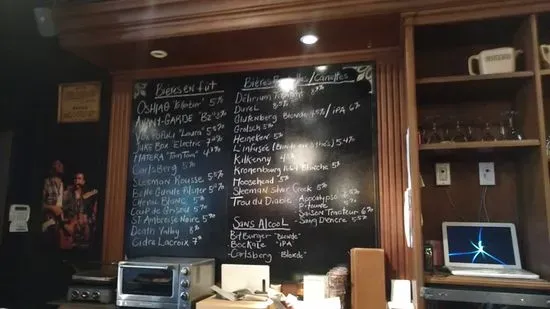 Bières en fût
OSHLAG 5%
AVANT-GARDE
Vox Populi "Laura"
JUKE BOX Electric 7%
MATERA "Tam Tam" 4%
Carlsberg 5%
Sleeman Rousse 5%
Belle Gueule Pilsner 5%
Cheval Blanc 5%
Coup de Grisou 5%
St Ambroise Noire 5%
Death Valley 8%
Cidre Lacroix 7%
Bières Bouteilles / Canettes
Delirium Tremens
Duvel
Glutenberg Blonde 4.5% / IPA 6%
Grolsch 5%
Heineken 5%
L'infusée 5.4%
Kilkenny
Kronenbourg 1664 Blanche 5%
Moosehead 5%
Sleeman Silver Creek 5%
Trou du Diable - Apocalypse
- Saison Tracteur 6%
- Sang D'encre 5.5%
Sans Alcool
Bitburger "Blonde"
- Bockale "IPA"
- Carlsberg "Blonde"